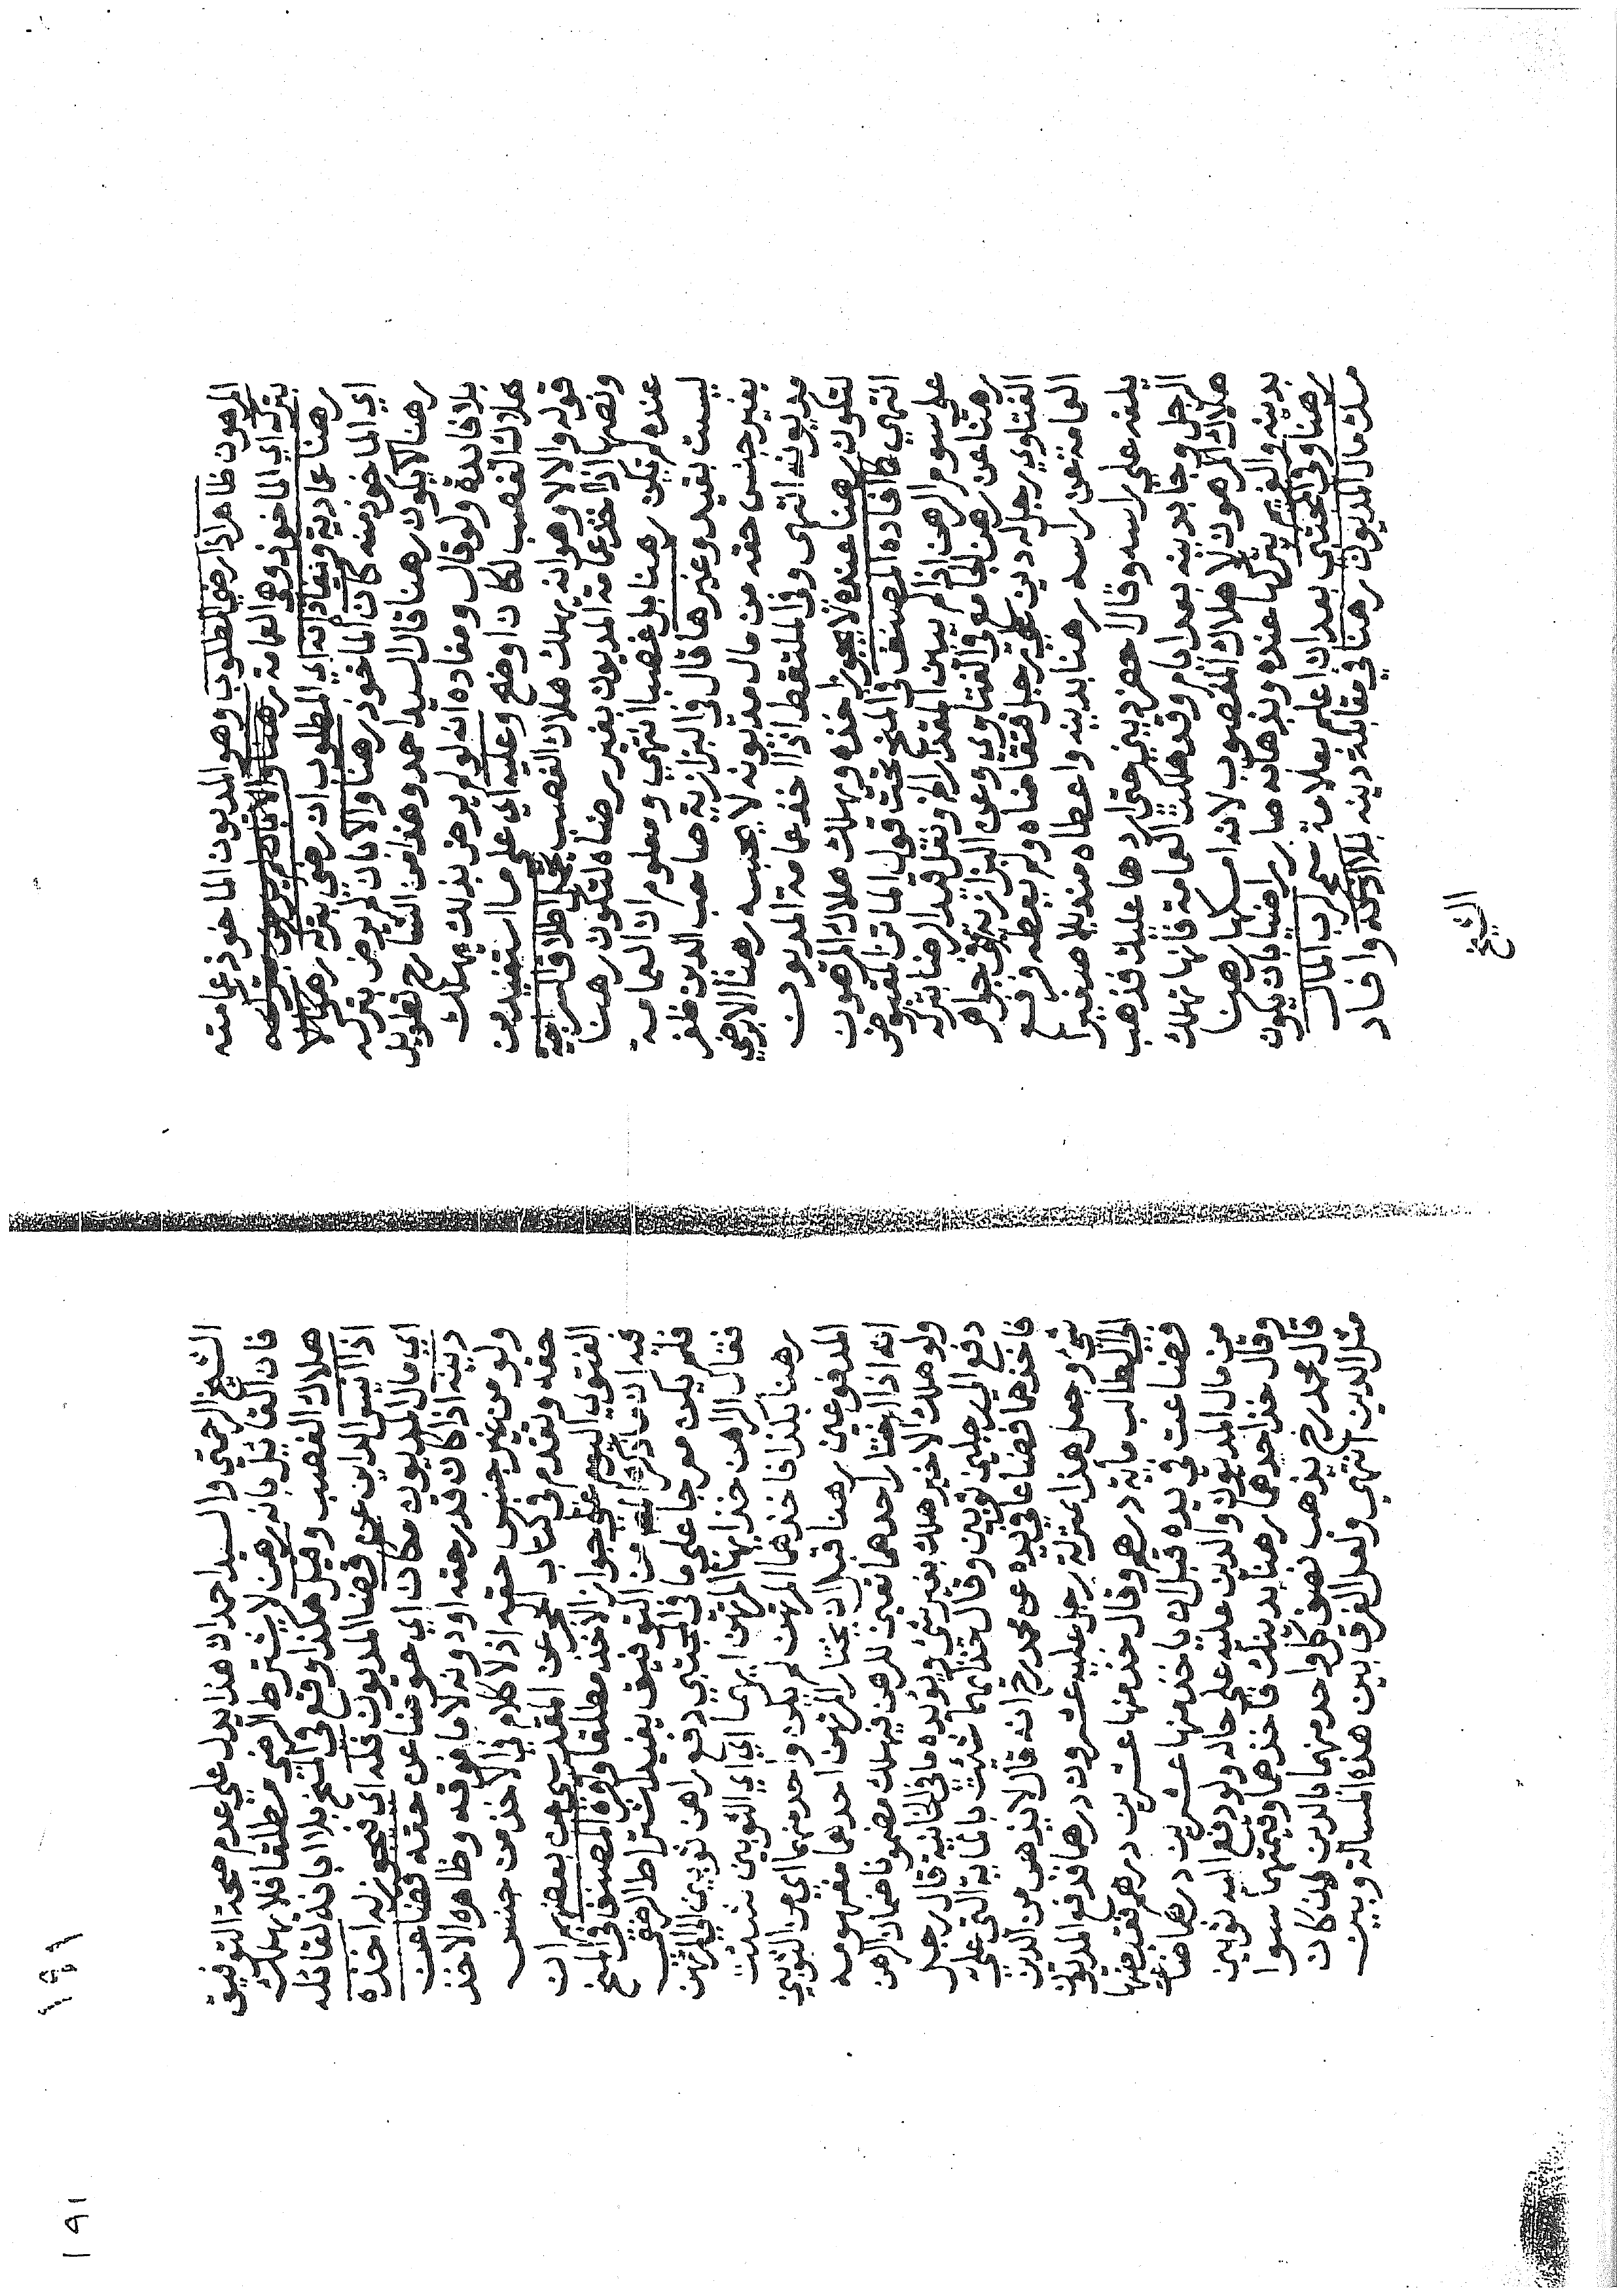 المرهون ظاهرا اذا رضي المطلوب وهو المديون الماخوذ عمامته
بتركه اي الماخوذ وهي العمامة رهنا
رهنا عمادية ومفاده انه اي المطلوب ان رضي بتركه رهنا والا
اي الماخوذ منه كان الماخوذ رهنا والا بان لم يرض بتركه
رهنا لا يكون رهنا قال السيد احمد وهذا من الشارح تطويل
بلا فايدة ولو قال ومفاده انه لو لم يرض بذلك يهلك
هلاك الغصب لكان اوضح وعليه اي على ما استفيد من
قوله والا لا وهو انه يهلك هلاك الغصب يحمل اطلاق السراجية
ونصها اذا اخذ عمامة المديون بغير رضاه لتكون رهنا
عنده لم تكن رهنا بل غصبا انتهي ومعلوم ان العمامة
ليست بقيد وغيرها قال في البزازية صاحب الدين ظفر
بغير جنس حقه من مال مديونه لا يحبسه رهنا الا برضي
مديونه انتهى وفي الملتقط اذا اخذ عمامة المديون
لتكون رهنا عنده لا يجوز اخذه ويهلك هلاك المرهون
انتهي كما افاده المصنف في المنح تحت قول الماتن المقبوض
على سوم الرهن اذا لم يبين المقدار اه ونقل قيد الرضا بتركه
رهنا عن رهن الجامع وفي الفتاوي وعن البزازية وفي جواهر
الفتاوي رجل له دين على رجل فتقاضاه ولم يعطه فرفع
العمامة عن راسه رهنا بدينه واعطاه منديلا صغيرا
يلفه علي راسه وقال احضر ديني حتى اردها عليك فذهب
الرجل وجا بدينه بعد ايام وقد هلكت العمامة فانها تهلك
هلاك المرهون لا هلاك المغصوب لانه امسكها رهنا
بدينه والغريم بتركها عنده وبذهابه صار راضيا بان يكون
رهنا وفي المجتبي بعد ان اعلم بعلامة شم لرب المال
مسك مال المديون رهنا في مقابلة دينه بلا اذنه وافاد
الشيخ
١٩٩
الشيخ الرحمتي والسيد احمد ان هذا يدل علي عدم صحة التوفيق
فان القائل بانه رهن لا يشترط الرضي مطلقا فلا يهلك
هلاك الغصب وقيل هكذا وقع في المنح بلا اباذة لقائله
اذا ايس الداين عن قضا المديون فله اي فيجوز له اخذه
اي مال المديون مكان اي حق قضا عن حقه قضا عن
دينه اذا كان قدر حقه او دونه لا ما فوقه وظاهره الاخذ
ولو من غير جنس حقه اذ لا كلام في الاخذ من جنس
حقه وتقدم في كتاب الحجر عن المقدسي عن بعضهم ان
الفتوي اليوم على جواز الاخذ مطلقا واقره المصنف في المنح
فيه ان ما ذكر من التوفيق يفيد اشتراط الرضي
فلم يكن معرجا على ما في المجتبي دفع راهن ثوبين الي المرتهن
فقال الراهن خذ ايها المرتهن ايهما اي اي الثوبين شئت
رهنا بكذا فاخذهما المرتهن لم يكن واحد منهما اي من الثوبين
المدفوعين رهنا قبل ان يختار المرتهن احدهما مفهومه
انه اذا اختار احدهما تعين للرهن فيهلك مضمونا ضمان الرهن
ولو هلك الاخير هلك بغير شئ ويؤيده ما في الخانية قال رجل
دفع الي رجلين ثوبين وقال خذ ايهما شئت بالماية التي علي
فاخذهما فضاعا في يده عن محمد رح انه قال لا يذهب من الدين
شئ وجعل هذا بمنزلة رجل عليه عشرون درهما فدفع المديون
الي الطالب ماية درهم وقال خذ منها عشرين درهم فقبضها
فضاعت في يده قبل ان ياخذ منها عشرين درهما ضاع
من مال المديون والدين عليه علي حاله ولو دفع اليه ثوبين
وقال خذ احدهما رهنا بدينك فاخذهما وقيمتهما سوا
قال محمد رح يذهب نصف كل واحد منهما بالدين ان كان
مثل الدين انتهي ولعل الفرق بين هذه المسالة وبين
١٩١